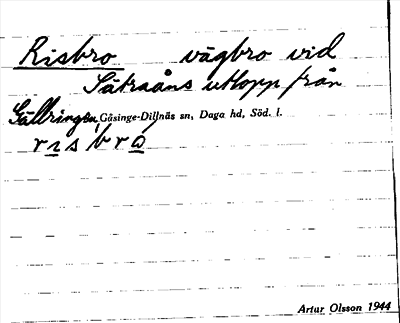 Risbro vägbro vid
Sätraåns utlopp från
Gällringen, Gåsinge-Dillnäs sn, Daga hd, Söd. l.
risbro
Artur Olsson 1944